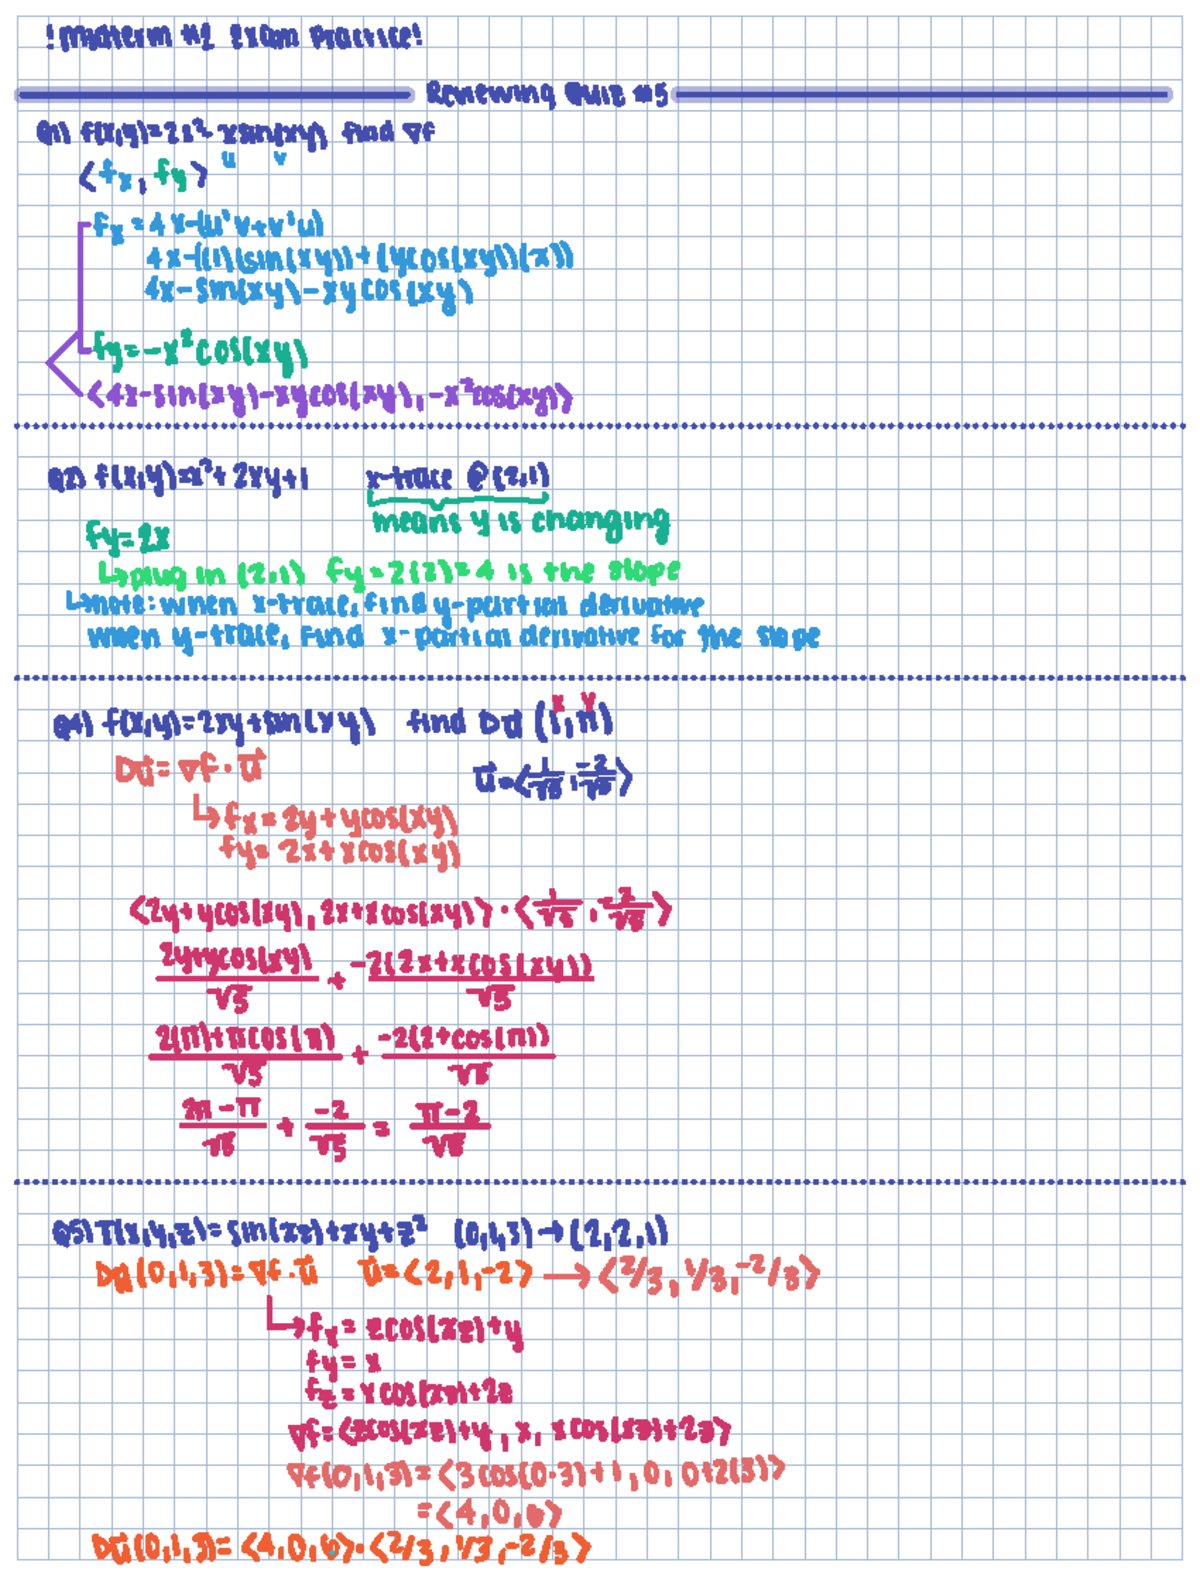 ! Midterm #2 Exam Practice!
Reviewing Quiz #5
Q1) f(x,y)=2x²-xsin(xy) find ∇f
u v
⟨fx, fy⟩
fx = 4x-(u'v+v'u)
4x-((1)(sin(xy))+(ycos(xy))(x))
4x-sin(xy)-xycos(xy)
fy=-x²cos(xy)
⟨4x-sin(xy)-xycos(xy),-x²cos(xy)⟩
Q2) f(x,y)=x²+2xy+1 x-trace @(2,1)
means y is changing
fy=2x
↳plug in (2,1) fy=2(2)=4 is the slope
↳note: when x-trace, find y-partial derivative
when y-trace, find x-partial derivative for the slope
x y
Q4) f(x,y)=2xy+sin(xy) find Dū (1,π)
Dū= ∇f·ū ū=⟨1/√5,-2/√5⟩
↳fx=2y+ycos(xy)
fy= 2x+xcos(xy)
⟨2y+ycos(xy), 2x+xcos(xy)⟩·⟨1/√5,-2/√5⟩
2y+ycos(xy)/√5 + -2(2x+xcos(xy))/√5
2(π)+πcos(π)/√5 + -2(2+cos(π))/√5
2π-π/√5 + -2/√5 = π-2/√5
Q5) T(x,y,z)= sin(xz)+xy+z² (0,1,3)→(2,2,1)
Dū(0,1,3)=∇f·ū ū=⟨2,1,-2⟩ → ⟨2/3, 1/3,-2/3⟩
↳fx = zcos(xz)+y
fy = x
fz = xcos(xz)+2z
∇f=⟨zcos(xz)+y, x, xcos(xz)+2z⟩
∇f(0,1,3)=⟨3cos(0·3)+1, 0, 0+2(3)⟩
=⟨4,0,6⟩
Dū(0,1,3)= ⟨4,0,6⟩·⟨2/3, 1/3,-2/3⟩